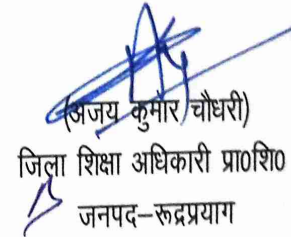 (अजय कुमार चौधरी)
जिला शिक्षा अधिकारी प्रा0शि0
जनपद–रूद्रप्रयाग